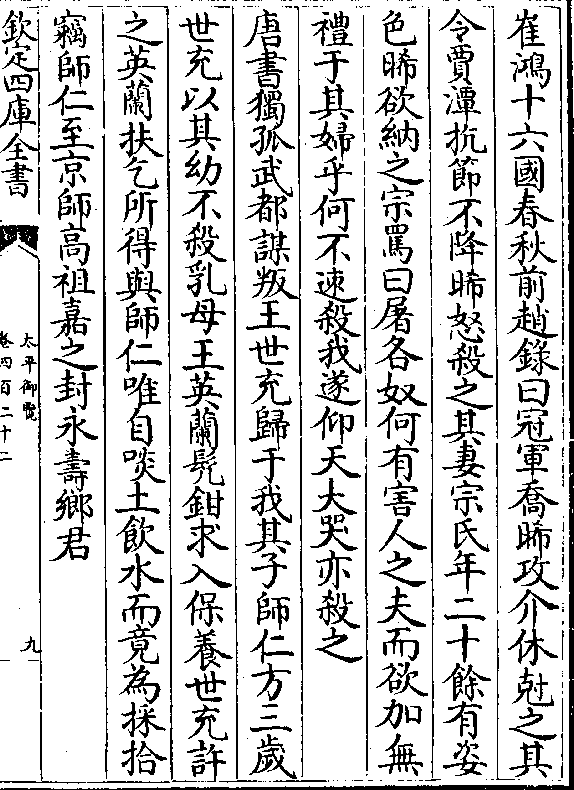 崔鴻十六國春秋前趙錄曰冠軍喬晞攻介休尅之其
令賈潭抗節不降晞怒殺之其妻宗氏年二十餘有姿
色晞欲納之宗罵曰屠各奴何有害人之夫而欲加無
禮于其婦乎何不速殺我遂仰天大哭亦殺之
唐書獨孤武都謀叛王世充歸于我其子師仁方三歲
世充以其幼不殺乳母王英蘭髠鉗求入保養世充許
之英蘭扶乞所得與師仁唯自啖土飲水而竟為採拾
竊師仁至京師高祖嘉之封永壽鄉君
欽定四庫全書
太平御覽
卷四百二十二
九